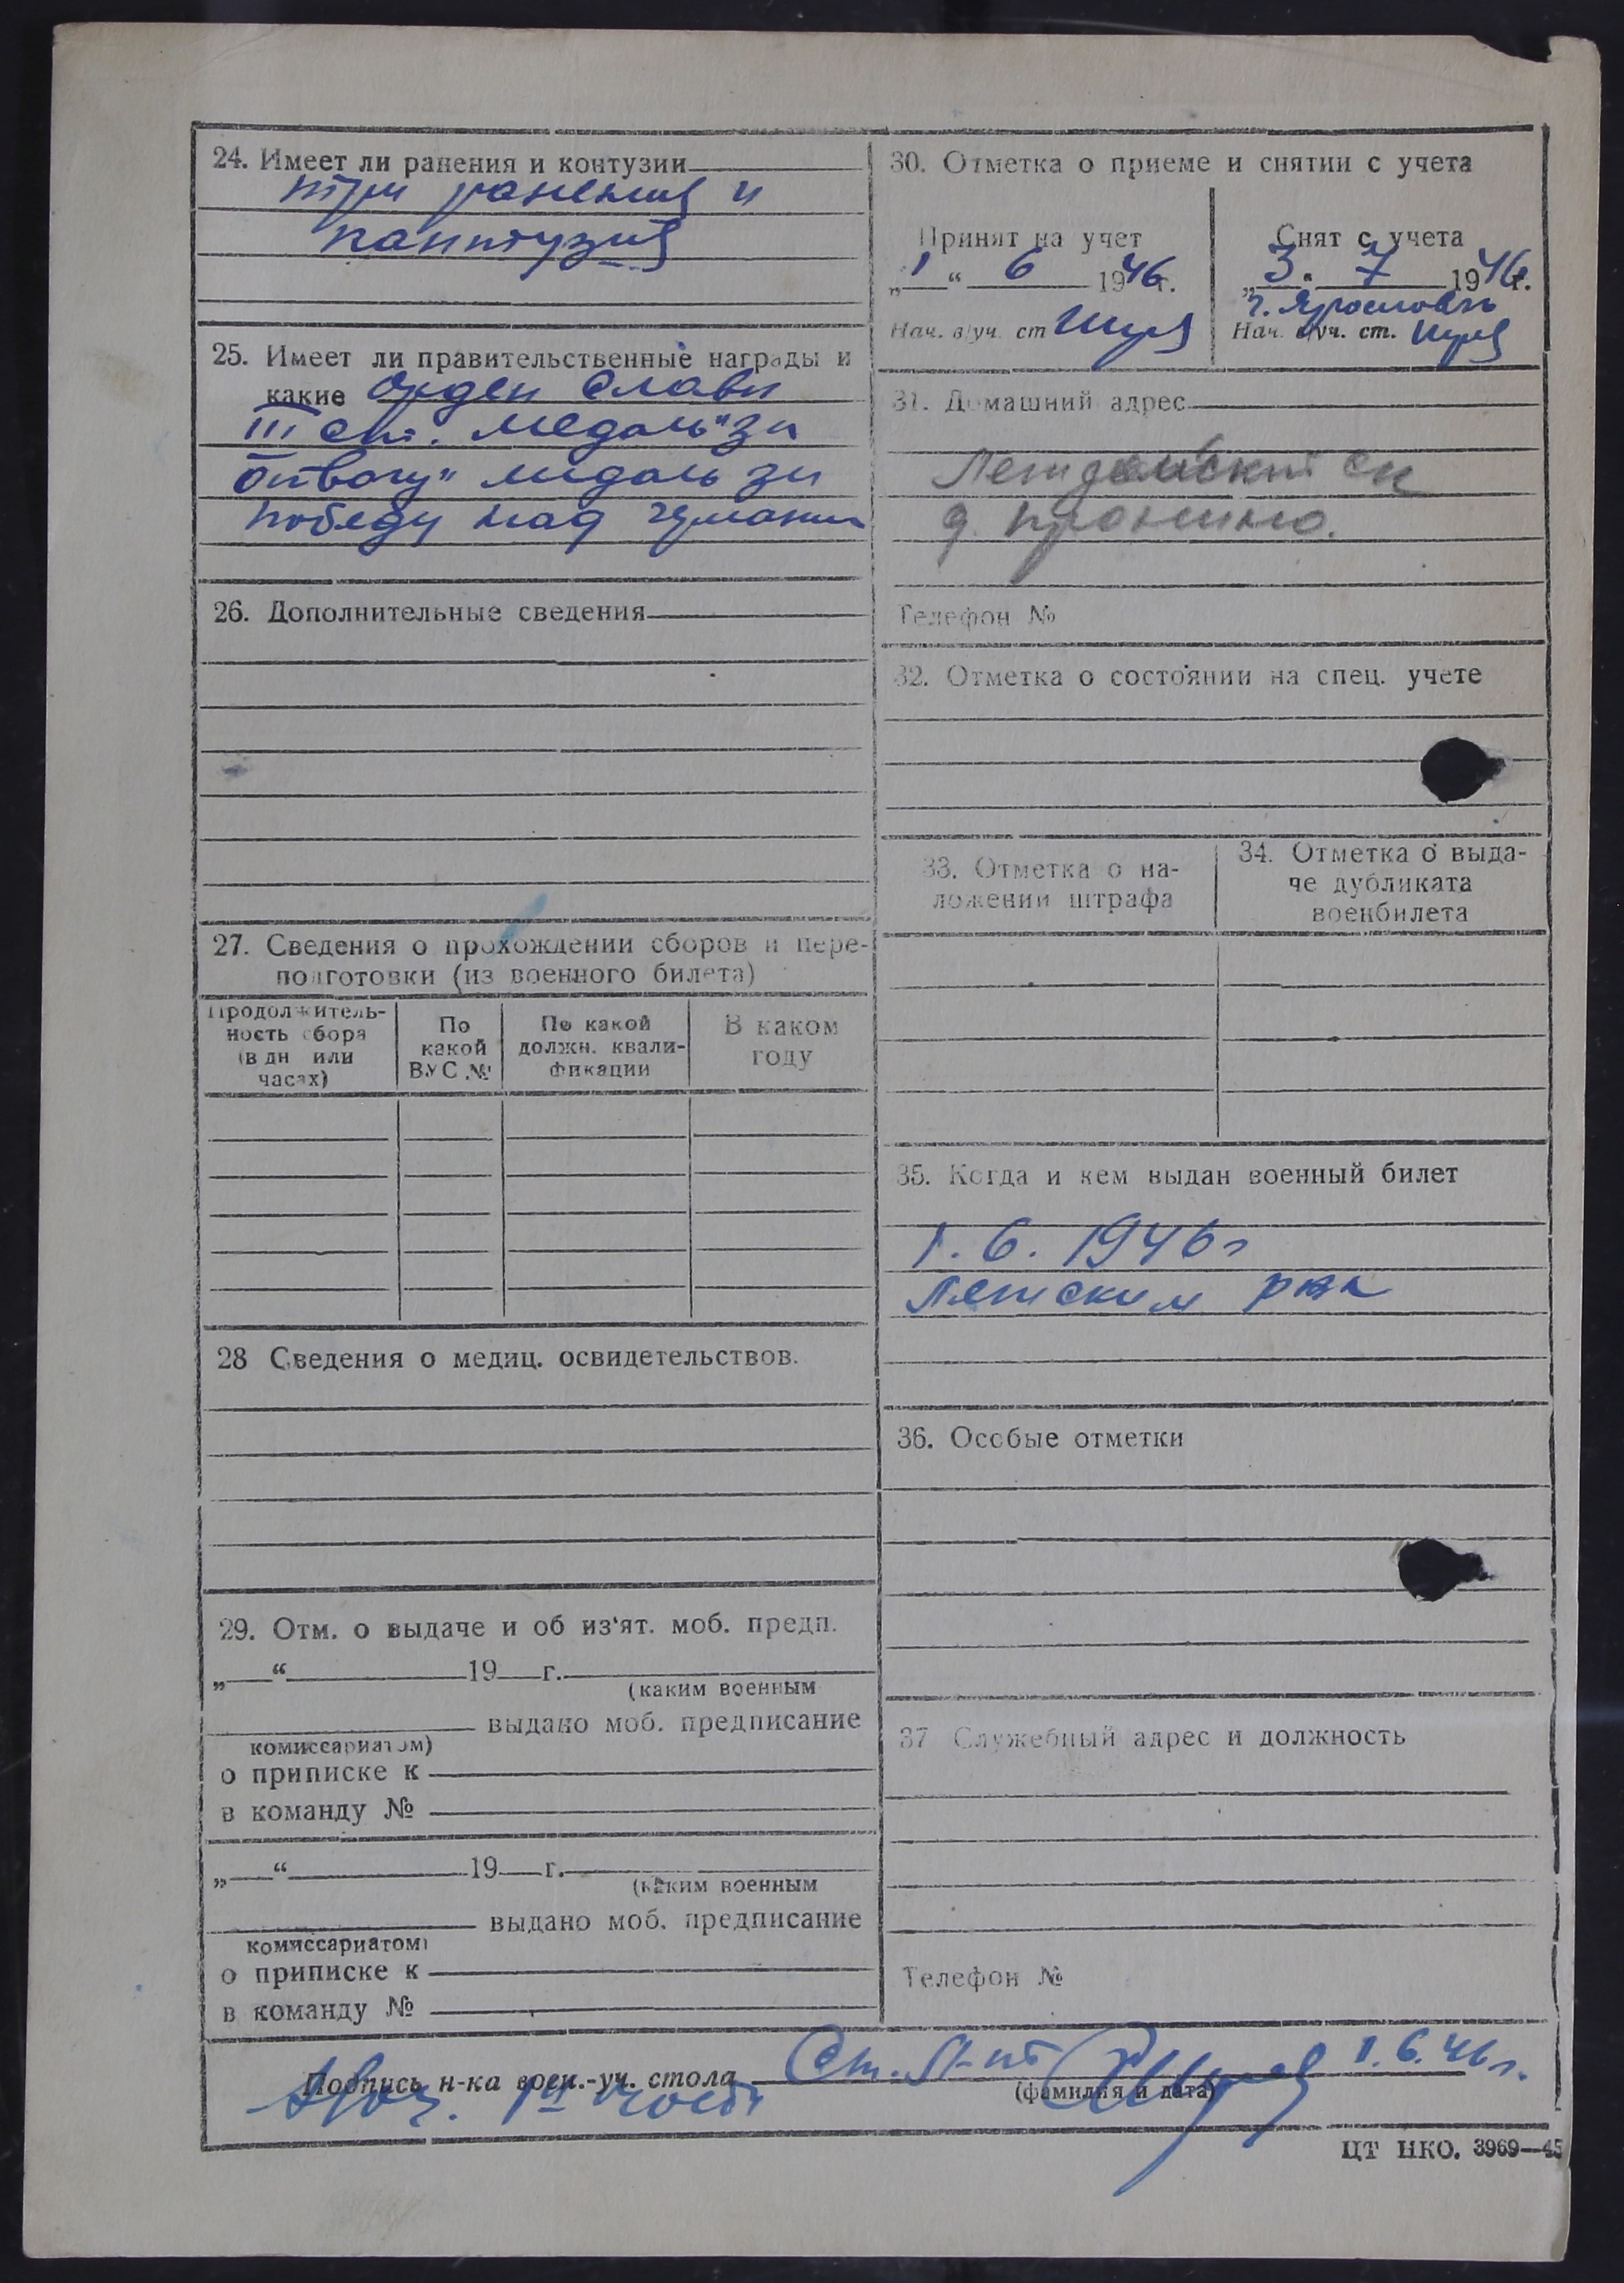 24. Имеет ли ранения и контузии
три ранения и
контузия
25. Имеет ли правительственные награды и
какие Орден Славы
III ст. медаль "за
отвагу" медаль за
победу над
26. Дополнительные сведения
27. Сведения о прохождении сборов и пере-
подготовки (из военного билета)
Продолжитель-
ность сбора
(в дн или
часах)
По
какой
ВУС №
По какой
должн. квали-
фикации
В каком
году
28 Сведения о медиц. освидетельствов.
29. Отм. о выдаче и об из'ят. моб. предп.
„ “ 19 г.
(каким военным
выдано моб. предписание
комиссариатом)
о приписке к
в команду №
„ “ 19 г.
(каким военным
выдано моб. предписание
комиссариатом)
о приписке к
в команду №
30. Отметка о приеме и снятии с учета
Принят на учет
„1“ 6 1946г.
Нач. в/уч. ст
Снят с учета
„3“ 7 1946г.
г. Ярославль
Нач. в/уч. ст.
31. Домашний адрес
д. Пронино.
Телефон №
32. Отметка о состоянии на спец. учете
33. Отметка о на-
ложении штрафа
34. Отметка о выда-
че дубликата
военбилета
35. Когда и кем выдан военный билет
1. 6. 1946г
рвк
36. Особые отметки
37 Служебный адрес и должность
Телефон №
Подпись н-ка воен.-уч. стола Ст. л-нт 1.6.46г.
(фамилия и дата)
1й части
ЦТ НКО. 3969—45